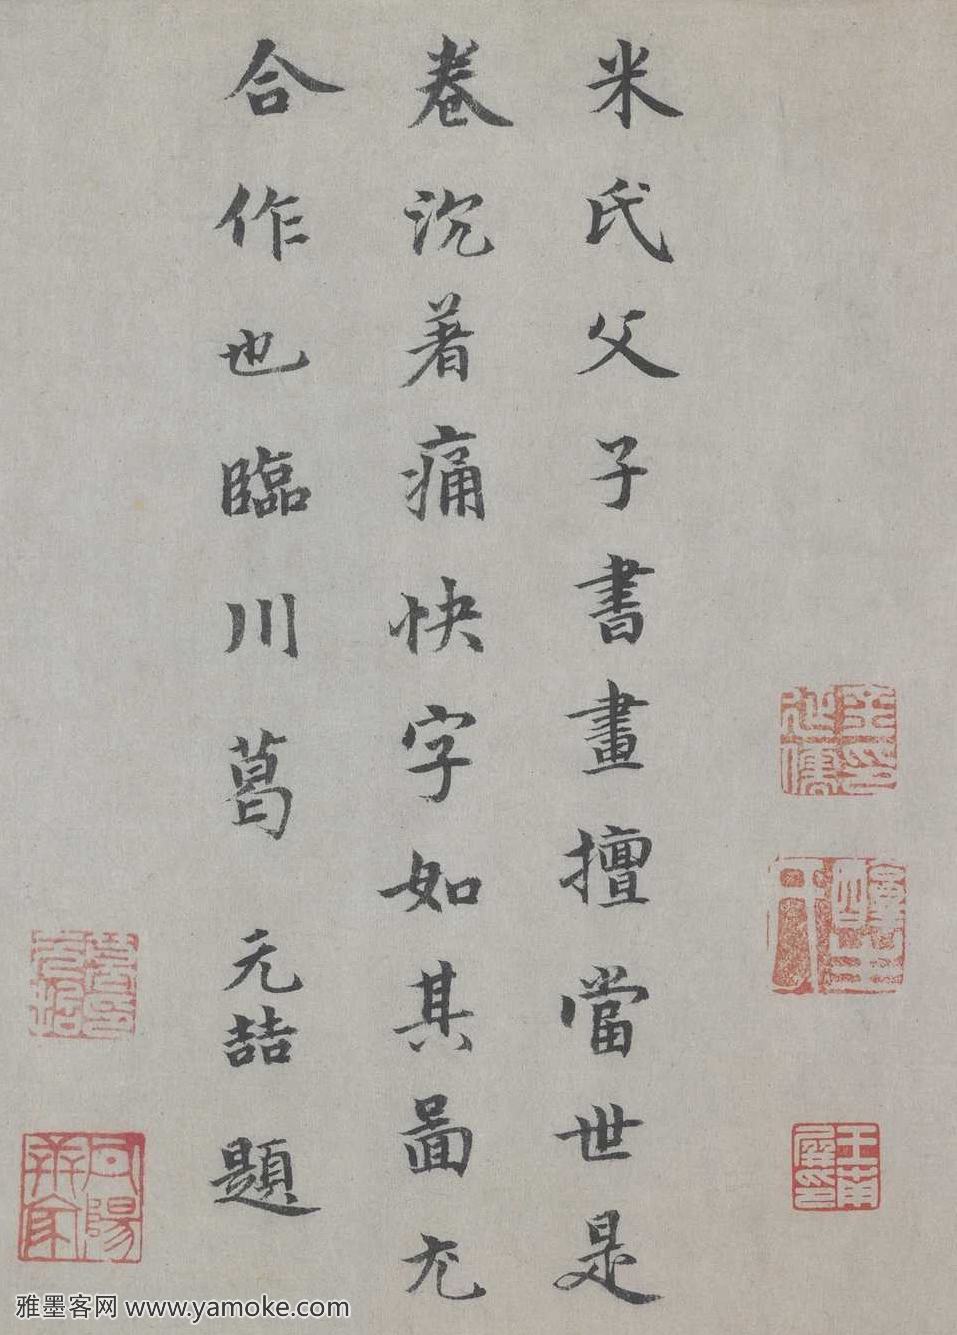 米氏父子書畫擅當世是
卷沉著痛快字如其畵尤
合作也臨川葛元喆題
雅墨客网 www.yamoke.com